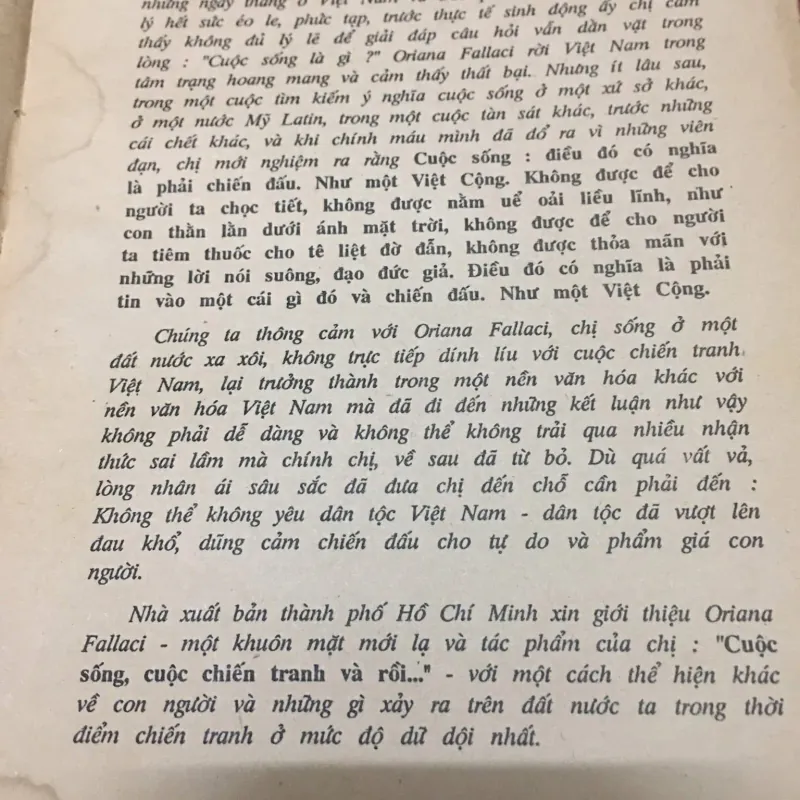 những ngày tháng ở Việt Nam và
lý hết sức éo le, phức tạp, trước thực tế sinh động ấy chị cảm
thấy không đủ lý lẽ để giải đáp câu hỏi vẫn dằn vặt trong
lòng : "Cuộc sống là gì ?" Oriana Fallaci rời Việt Nam trong
tâm trạng hoang mang và cảm thấy thất bại. Nhưng ít lâu sau,
trong một cuộc tìm kiếm ý nghĩa cuộc sống ở một xứ sở khác,
ở một nước Mỹ Latin, trong một cuộc tàn sát khác, trước những
cái chết khác, và khi chính máu mình đã đổ ra vì những viên
đạn, chị mới nghiệm ra rằng Cuộc sống : điều đó có nghĩa
là phải chiến đấu. Như một Việt Cộng. Không được để cho
người ta chọc tiết, không được nằm uể oải liều lĩnh, như
con thằn lằn dưới ánh mặt trời, không được để cho người
ta tiêm thuốc cho tê liệt đờ đẫn, không được thỏa mãn với
những lời nói suông, đạo đức giả. Điều đó có nghĩa là phải
tin vào một cái gì đó và chiến đấu. Như một Việt Cộng.
Chúng ta thông cảm với Oriana Fallaci, chị sống ở một
đất nước xa xôi, không trực tiếp dính líu với cuộc chiến tranh
Việt Nam, lại trưởng thành trong một nền văn hóa khác với
nền văn hóa Việt Nam mà đã đi đến những kết luận như vậy
không phải dễ dàng và không thể không trải qua nhiều nhận
thức sai lầm mà chính chị, về sau đã từ bỏ. Dù quá vất vả,
lòng nhân ái sâu sắc đã đưa chị đến chỗ cần phải đến :
Không thể không yêu dân tộc Việt Nam - dân tộc đã vượt lên
đau khổ, dũng cảm chiến đấu cho tự do và phẩm giá con
người.
Nhà xuất bản thành phố Hồ Chí Minh xin giới thiệu Oriana
Fallaci - một khuôn mặt mới lạ và tác phẩm của chị : "Cuộc
sống, cuộc chiến tranh và rồi..." - với một cách thể hiện khác
về con người và những gì xảy ra trên đất nước ta trong thời
điểm chiến tranh ở mức độ dữ dội nhất.